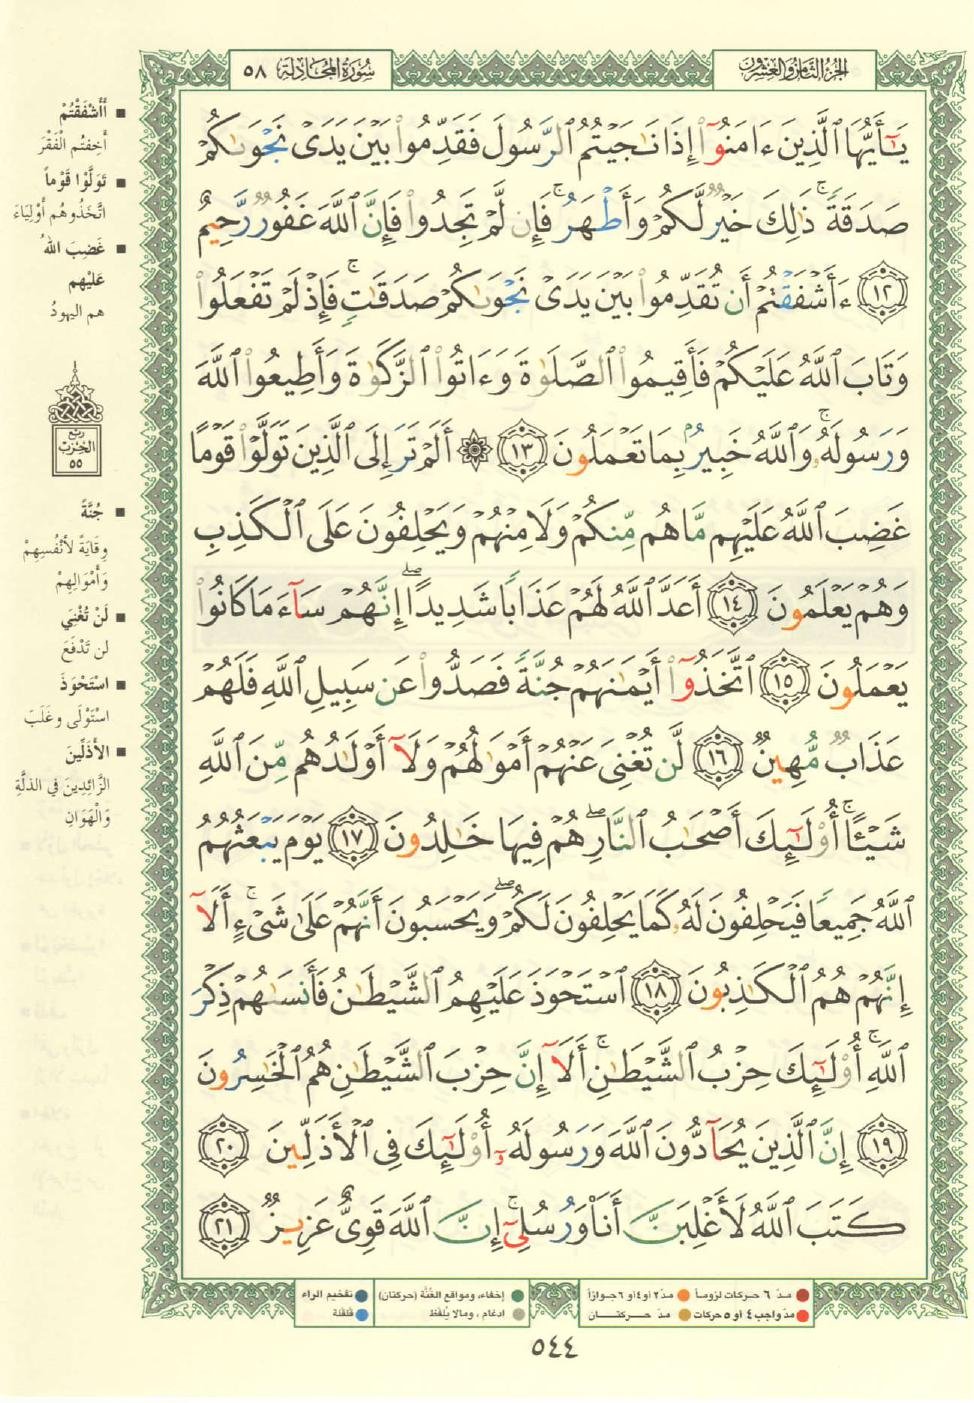 سُورَةُ المُجَادلة ٥٨
الجُزءُ الثَّامِنُ وَالعِشْرُونَ
يَٰٓأَيُّهَا ٱلَّذِينَ ءَامَنُوٓا۟ إِذَا نَٰجَيْتُمُ ٱلرَّسُولَ فَقَدِّمُوا۟ بَيْنَ يَدَىْ نَجْوَىٰكُمْ
صَدَقَةً ۚ ذَٰلِكَ خَيْرٌ لَّكُمْ وَأَطْهَرُ ۚ فَإِن لَّمْ تَجِدُوا۟ فَإِنَّ ٱللَّهَ غَفُورٌ رَّحِيمٌ
١٢ ءَأَشْفَقْتُمْ أَن تُقَدِّمُوا۟ بَيْنَ يَدَىْ نَجْوَىٰكُمْ صَدَقَٰتٍ ۚ فَإِذْ لَمْ تَفْعَلُوا۟
وَتَابَ ٱللَّهُ عَلَيْكُمْ فَأَقِيمُوا۟ ٱلصَّلَوٰةَ وَءَاتُوا۟ ٱلزَّكَوٰةَ وَأَطِيعُوا۟ ٱللَّهَ
وَرَسُولَهُۥ ۚ وَٱللَّهُ خَبِيرٌۢ بِمَا تَعْمَلُونَ ١٣ ۞ أَلَمْ تَرَ إِلَى ٱلَّذِينَ تَوَلَّوْا۟ قَوْمًا
غَضِبَ ٱللَّهُ عَلَيْهِم مَّا هُم مِّنكُمْ وَلَا مِنْهُمْ وَيَحْلِفُونَ عَلَى ٱلْكَذِبِ
وَهُمْ يَعْلَمُونَ ١٤ أَعَدَّ ٱللَّهُ لَهُمْ عَذَابًا شَدِيدًا ۖ إِنَّهُمْ سَآءَ مَا كَانُوا۟
يَعْمَلُونَ ١٥ ٱتَّخَذُوٓا۟ أَيْمَٰنَهُمْ جُنَّةً فَصَدُّوا۟ عَن سَبِيلِ ٱللَّهِ فَلَهُمْ
عَذَابٌ مُّهِينٌ ١٦ لَّن تُغْنِىَ عَنْهُمْ أَمْوَٰلُهُمْ وَلَآ أَوْلَٰدُهُم مِّنَ ٱللَّهِ
شَيْـًٔا ۚ أُو۟لَٰٓئِكَ أَصْحَٰبُ ٱلنَّارِ ۖ هُمْ فِيهَا خَٰلِدُونَ ١٧ يَوْمَ يَبْعَثُهُمُ
ٱللَّهُ جَمِيعًا فَيَحْلِفُونَ لَهُۥ كَمَا يَحْلِفُونَ لَكُمْ ۖ وَيَحْسَبُونَ أَنَّهُمْ عَلَىٰ شَىْءٍ ۚ أَلَآ
إِنَّهُمْ هُمُ ٱلْكَٰذِبُونَ ١٨ ٱسْتَحْوَذَ عَلَيْهِمُ ٱلشَّيْطَٰنُ فَأَنسَىٰهُمْ ذِكْرَ
ٱللَّهِ ۚ أُو۟لَٰٓئِكَ حِزْبُ ٱلشَّيْطَٰنِ ۚ أَلَآ إِنَّ حِزْبَ ٱلشَّيْطَٰنِ هُمُ ٱلْخَٰسِرُونَ
١٩ إِنَّ ٱلَّذِينَ يُحَآدُّونَ ٱللَّهَ وَرَسُولَهُۥٓ أُو۟لَٰٓئِكَ فِى ٱلْأَذَلِّينَ ٢٠
كَتَبَ ٱللَّهُ لَأَغْلِبَنَّ أَنَا۠ وَرُسُلِىٓ ۚ إِنَّ ٱللَّهَ قَوِىٌّ عَزِيزٌ ٢١
■ أَأَشْفَقْتُمْ
أَخِفْتُم الْفَقْرَ
■ تَوَلَّوْا قَوْماً
اتَّخَذُوهُم أَوْلِيَاءَ
■ غَضِبَ اللهُ
عَلَيْهِم
هم اليهودُ
ربع
الحزب
٥٥
■ جُنَّةً
وِقَايَةً لأَنْفُسِهِمْ
وَأَمْوَالِهِمْ
■ لَنْ تُغْنِيَ
لن تَدْفَعَ
■ اسْتَحْوَذَ
اسْتَوْلَى وغَلَبَ
■ الأَذَلِّينَ
الزَّائِدِينَ في الذلَّةِ
وَالْهَوَانِ
● مدّ ٦ حركات لزوماً ● مدّ ٢ او ٤ او ٦ جوازاً
● مدّ واجب ٤ او ٥ حركات ● مدّ حركتان
● إخفاء، ومواقع الغُنَّة (حركتان)
● ادغام، ومالا يُلفَظ
● تفخيم الراء
● قلقلة
٥٤٤